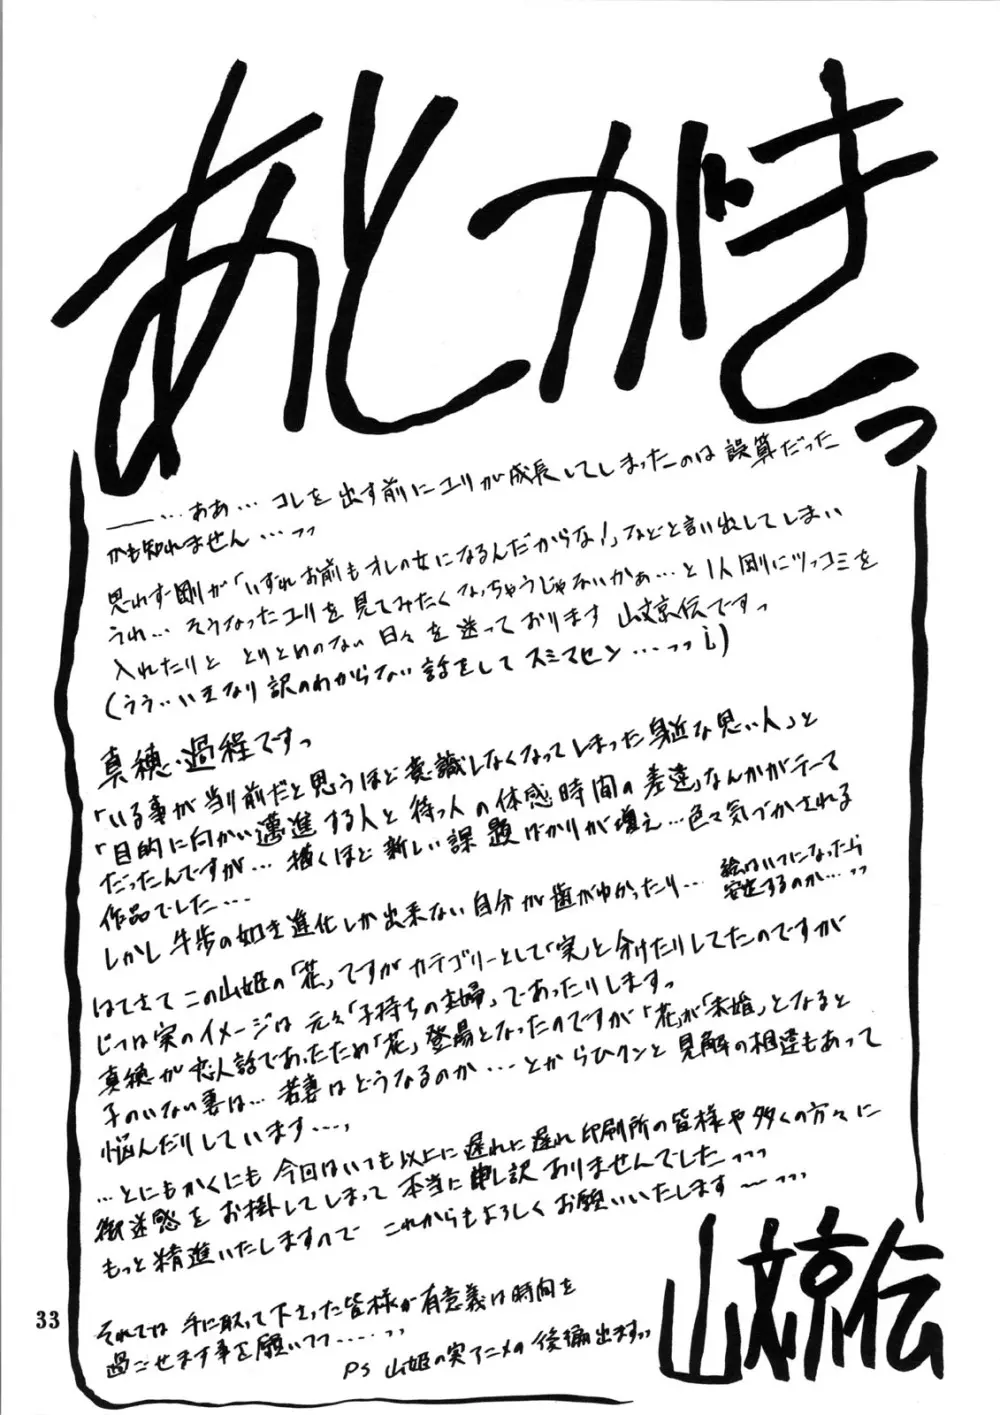 あとがきっ
――…ああ… コレを出す前にユリが成長してしまったのは誤算だった
かも知れません…っっ
思わず剛が「いずれお前もオレの女になるんだからな!」などと言い出してしまい
うれ… そうなったユリを見てみたくなっちゃうじゃないかぁ…と1人剛にツッコミを
入れたりと とりとめのない日々を送っております 山文京伝ですっ
(うぅ…いきなり訳のわからない話をしてスミマセン…っっ)
真穂・過程ですっ
「いる事が当り前だと思うほど意識しなくなってしまった身近な思い人」と
「目的に向かい邁進する人と待つ人の体感時間の差違」なんかがテーマ
だったんですが… 描くほど新しい課題ばかりが増え…色々気づかされる
作品でした…
しかし牛歩の如き進化しか出来ない自分が歯がゆかったり…
絵はいつになったら
安定するのか…っっ
はてさて この山姫の「花」ですがカテゴリーとして「実」と分けたりしてたのですが
じつは実のイメージは元々「子持ちの主婦」であったりしますっ
真穂が恋人話であったため「花」登場となったのですが「花」が「未婚」となると
子のいない妻は… 若妻はどうなるのか…とからひクンと見解の相違もあって
悩んだりしています…
…とにもかくにも 今回はいつも以上に遅れに遅れ 印刷所の皆様や多くの方々に
御迷惑をお掛してしまって 本当に申し訳ありませんでした…っっ
もっと精進いたしますので これからもよろしくお願いいたします〜…っっ
それでは 手に取って下さった皆様が有意義な時間を
過ごせます事を願いつつ……っっ
PS 山姫の実アニメの後編出ますっっ
山文京伝
33